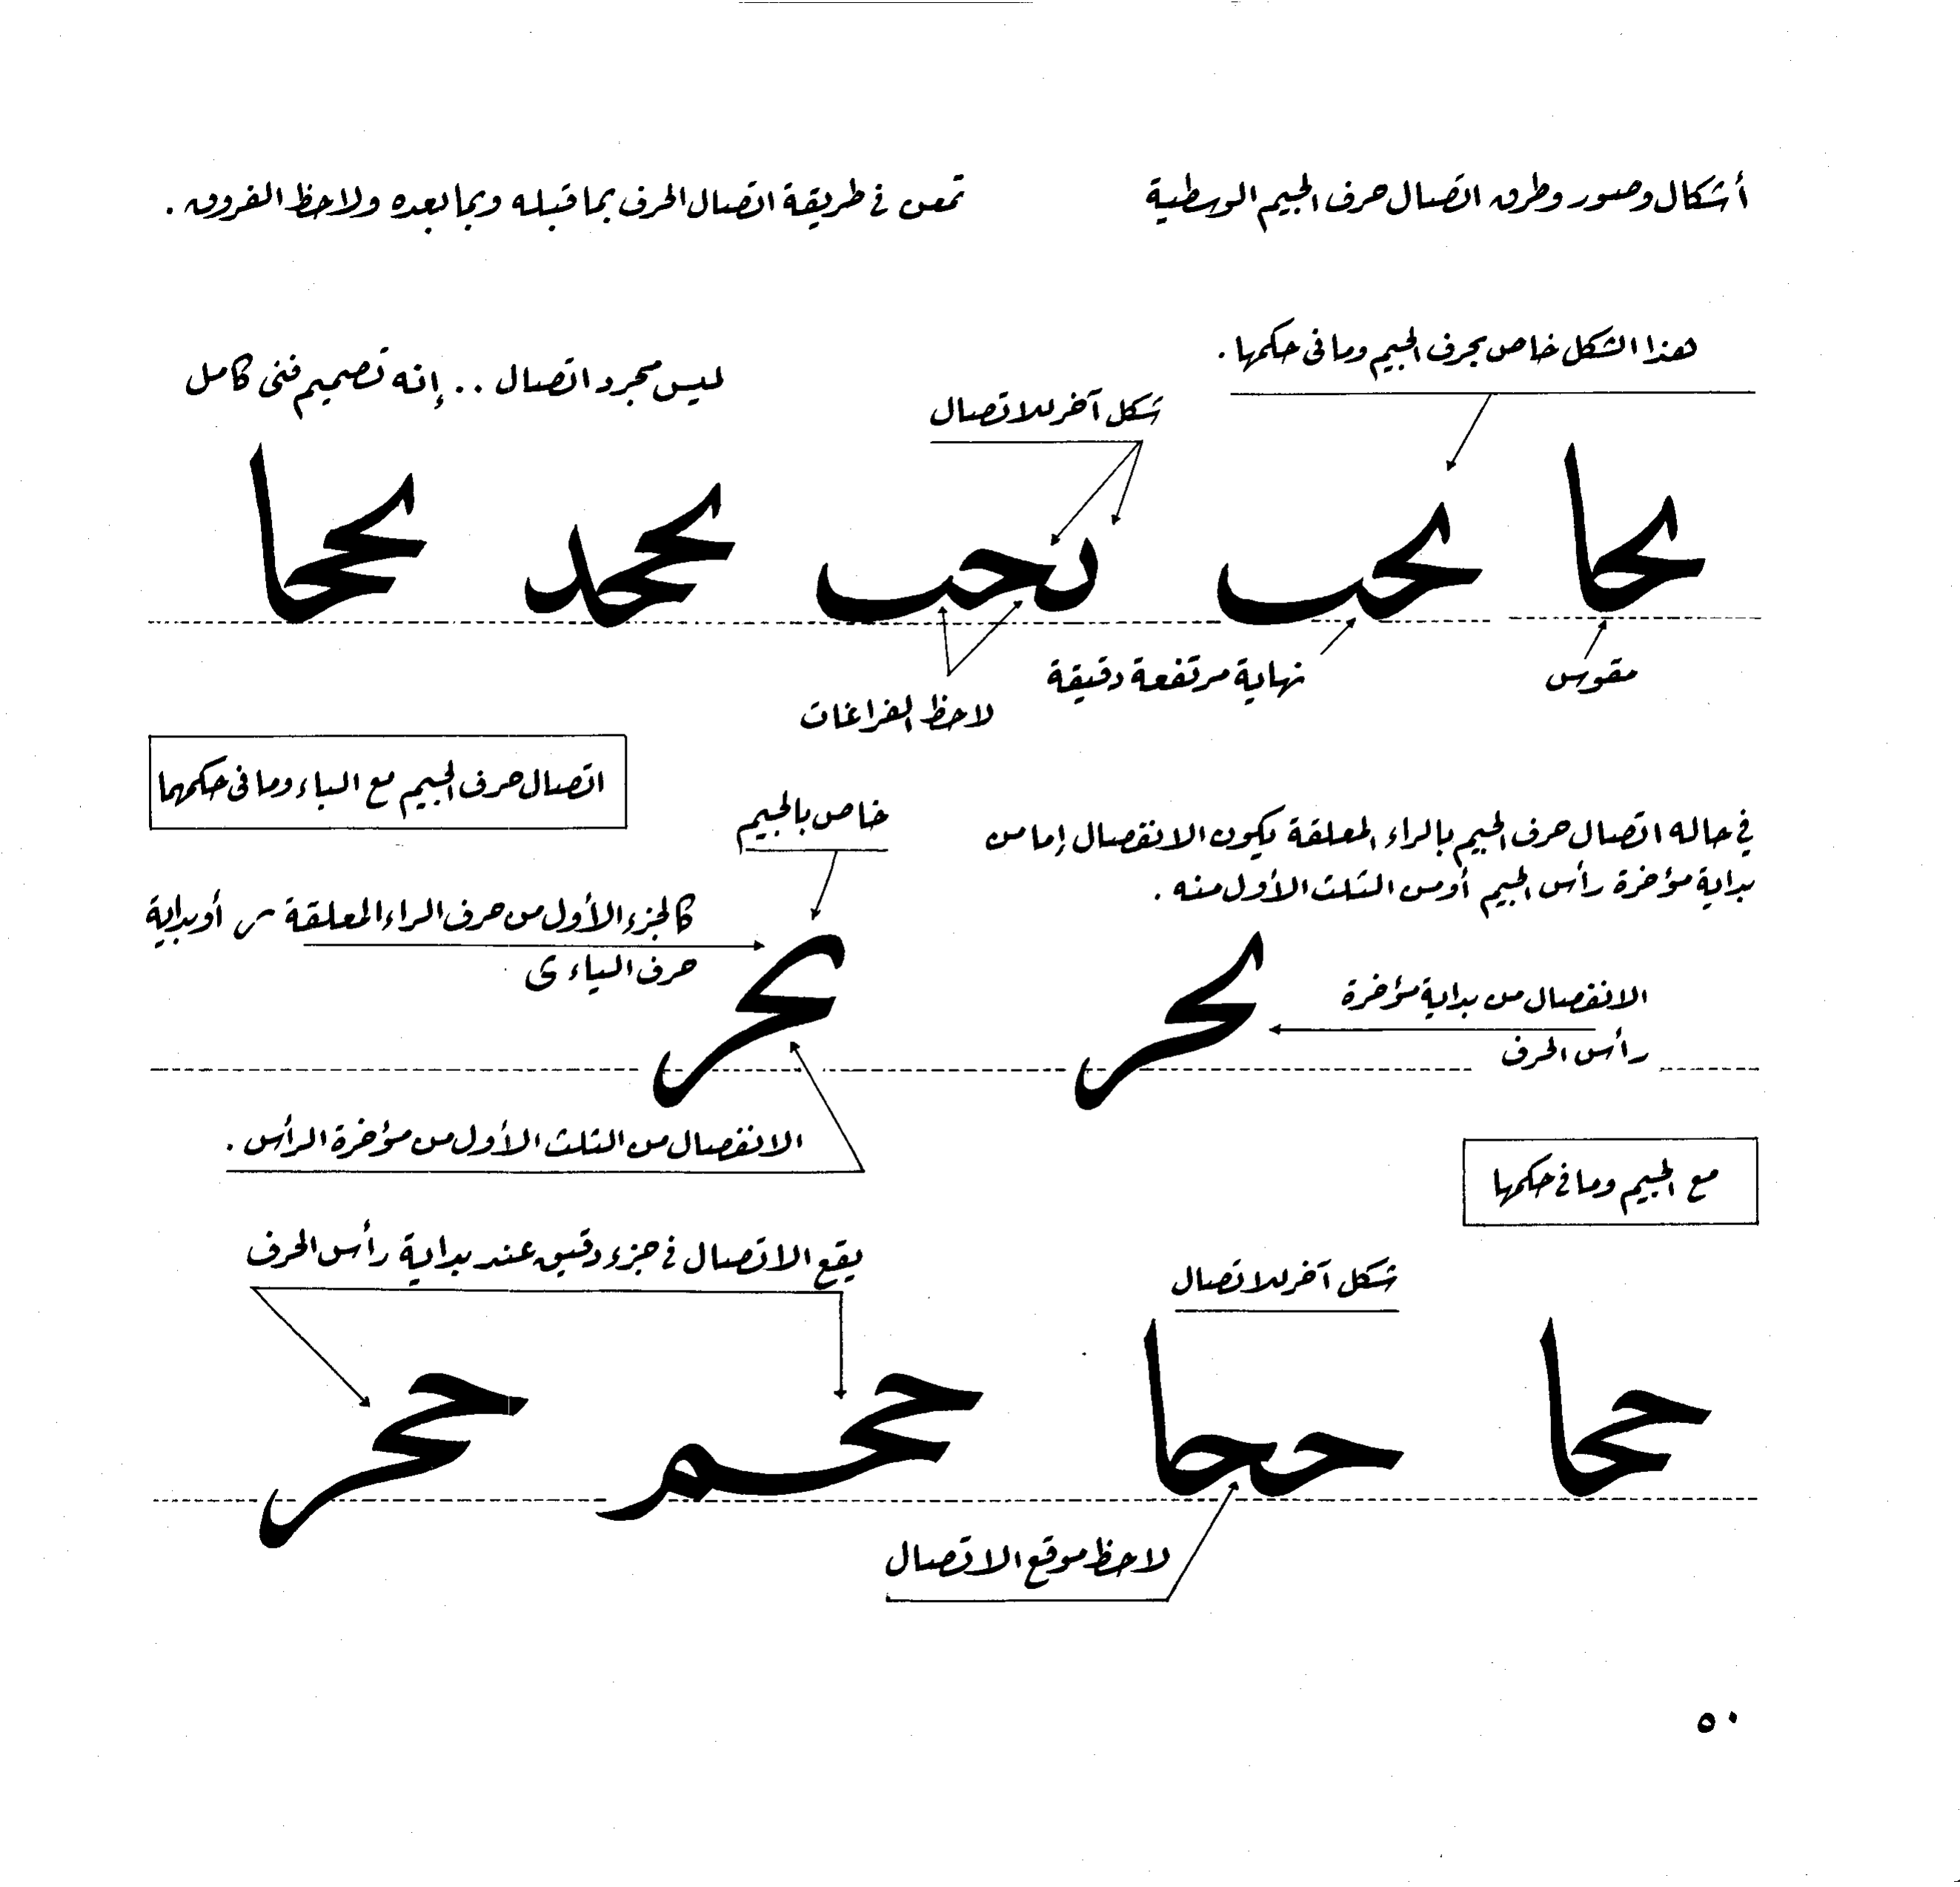 أشكال وصور وطرق اتصال حرف الجيم الوسطية
تمعن في طريقة اتصال الحرف بما قبله وبما بعده ولاحظ الفروق .
هذا الشكل خاص بحرف الجيم وما في حكمها .
شكل آخر للاتصال
ليس مجرد اتصال . . إنه تصميم فني كامل
مقوس
نهاية مرتفعة دقيقة
لاحظ الفراغات
اتصال حرف الجيم مع الباء وما في حكمهما
في حاله اتصال حرف الجيم بالراء المعلقة يكون الانفصال إما من
بداية مؤخرة رأس الجيم أو من الثلث الأول منه .
خاص بالجيم
كالجزء الأول من حرف الراء المعلقة أو بداية
حرف الياء ى
الانفصال من بداية مؤخرة
رأس الحرف
الانفصال من الثلث الأول من مؤخرة الرأس .
مع الجيم وما في حكمها
شكل آخر للاتصال
يقع الاتصال في جزء دقيق عند بداية رأس الحرف
حجا
لاحظ موقع الاتصال
٥٠